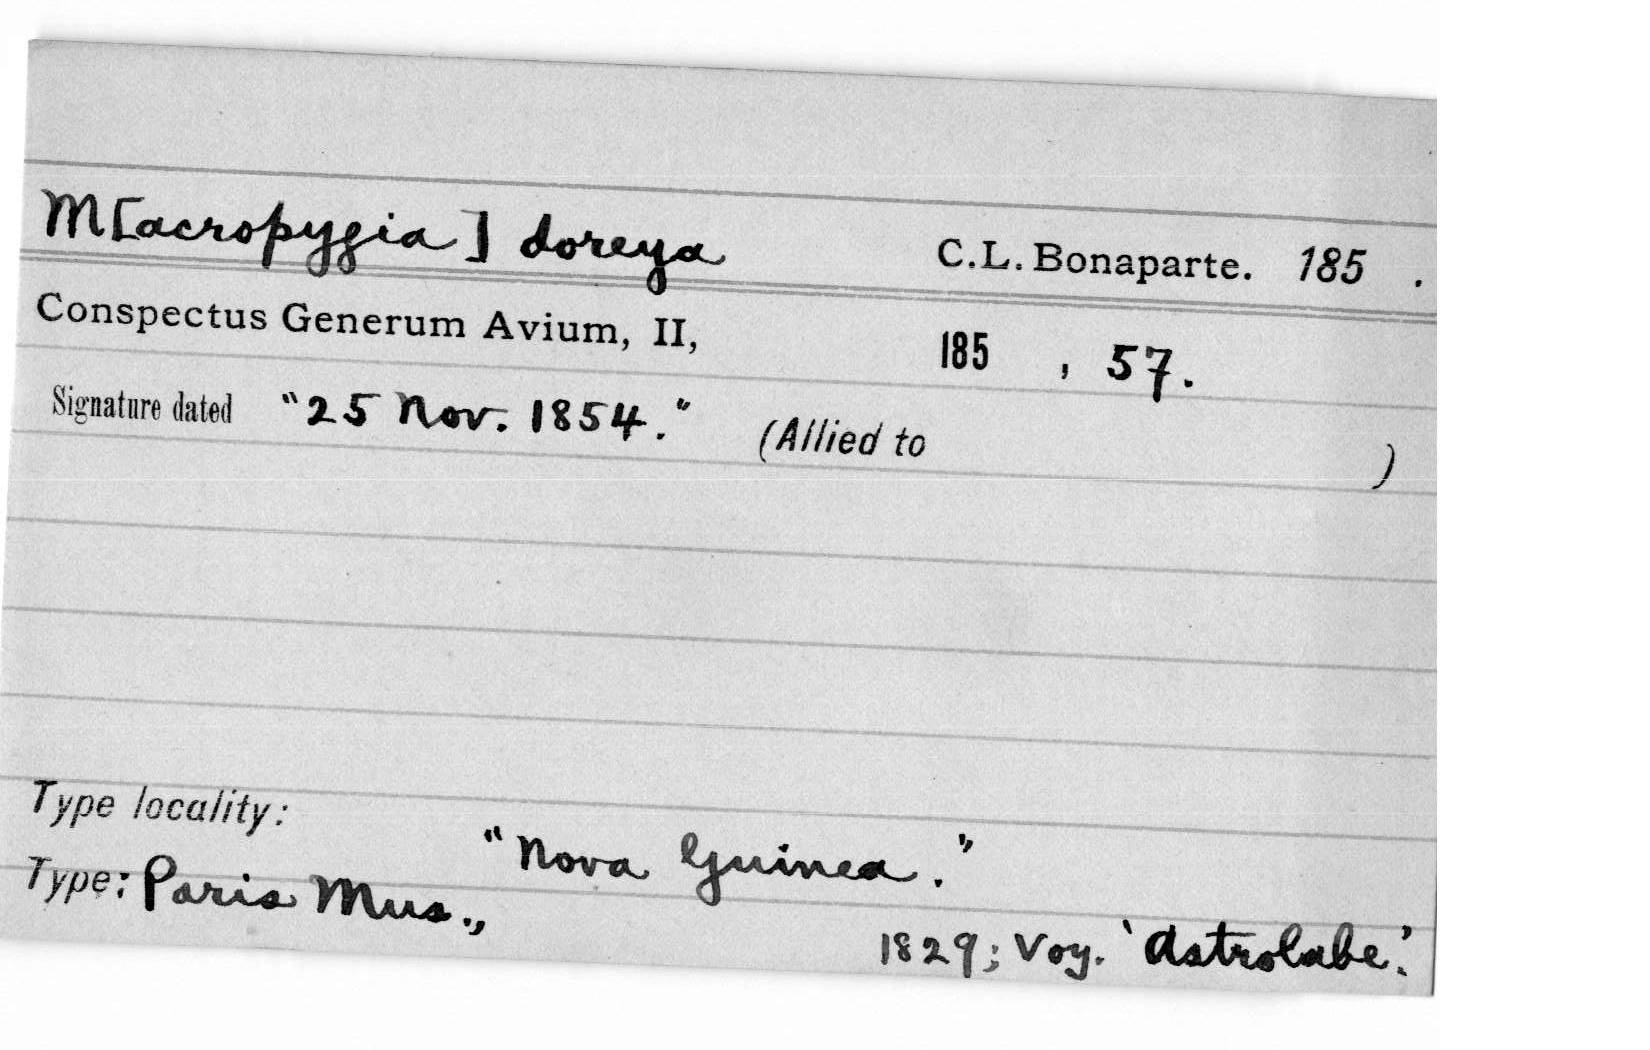 M[acropygia] doreya C.L. Bonaparte. 185 .
Conspectus Generum Avium, II, 185 , 57.
Signature dated "25 Nov. 1854." (Allied to )
Type locality:
"Nova Guinea."
Type: Paris Mus.,
1829; Voy. 'Astrolabe'.